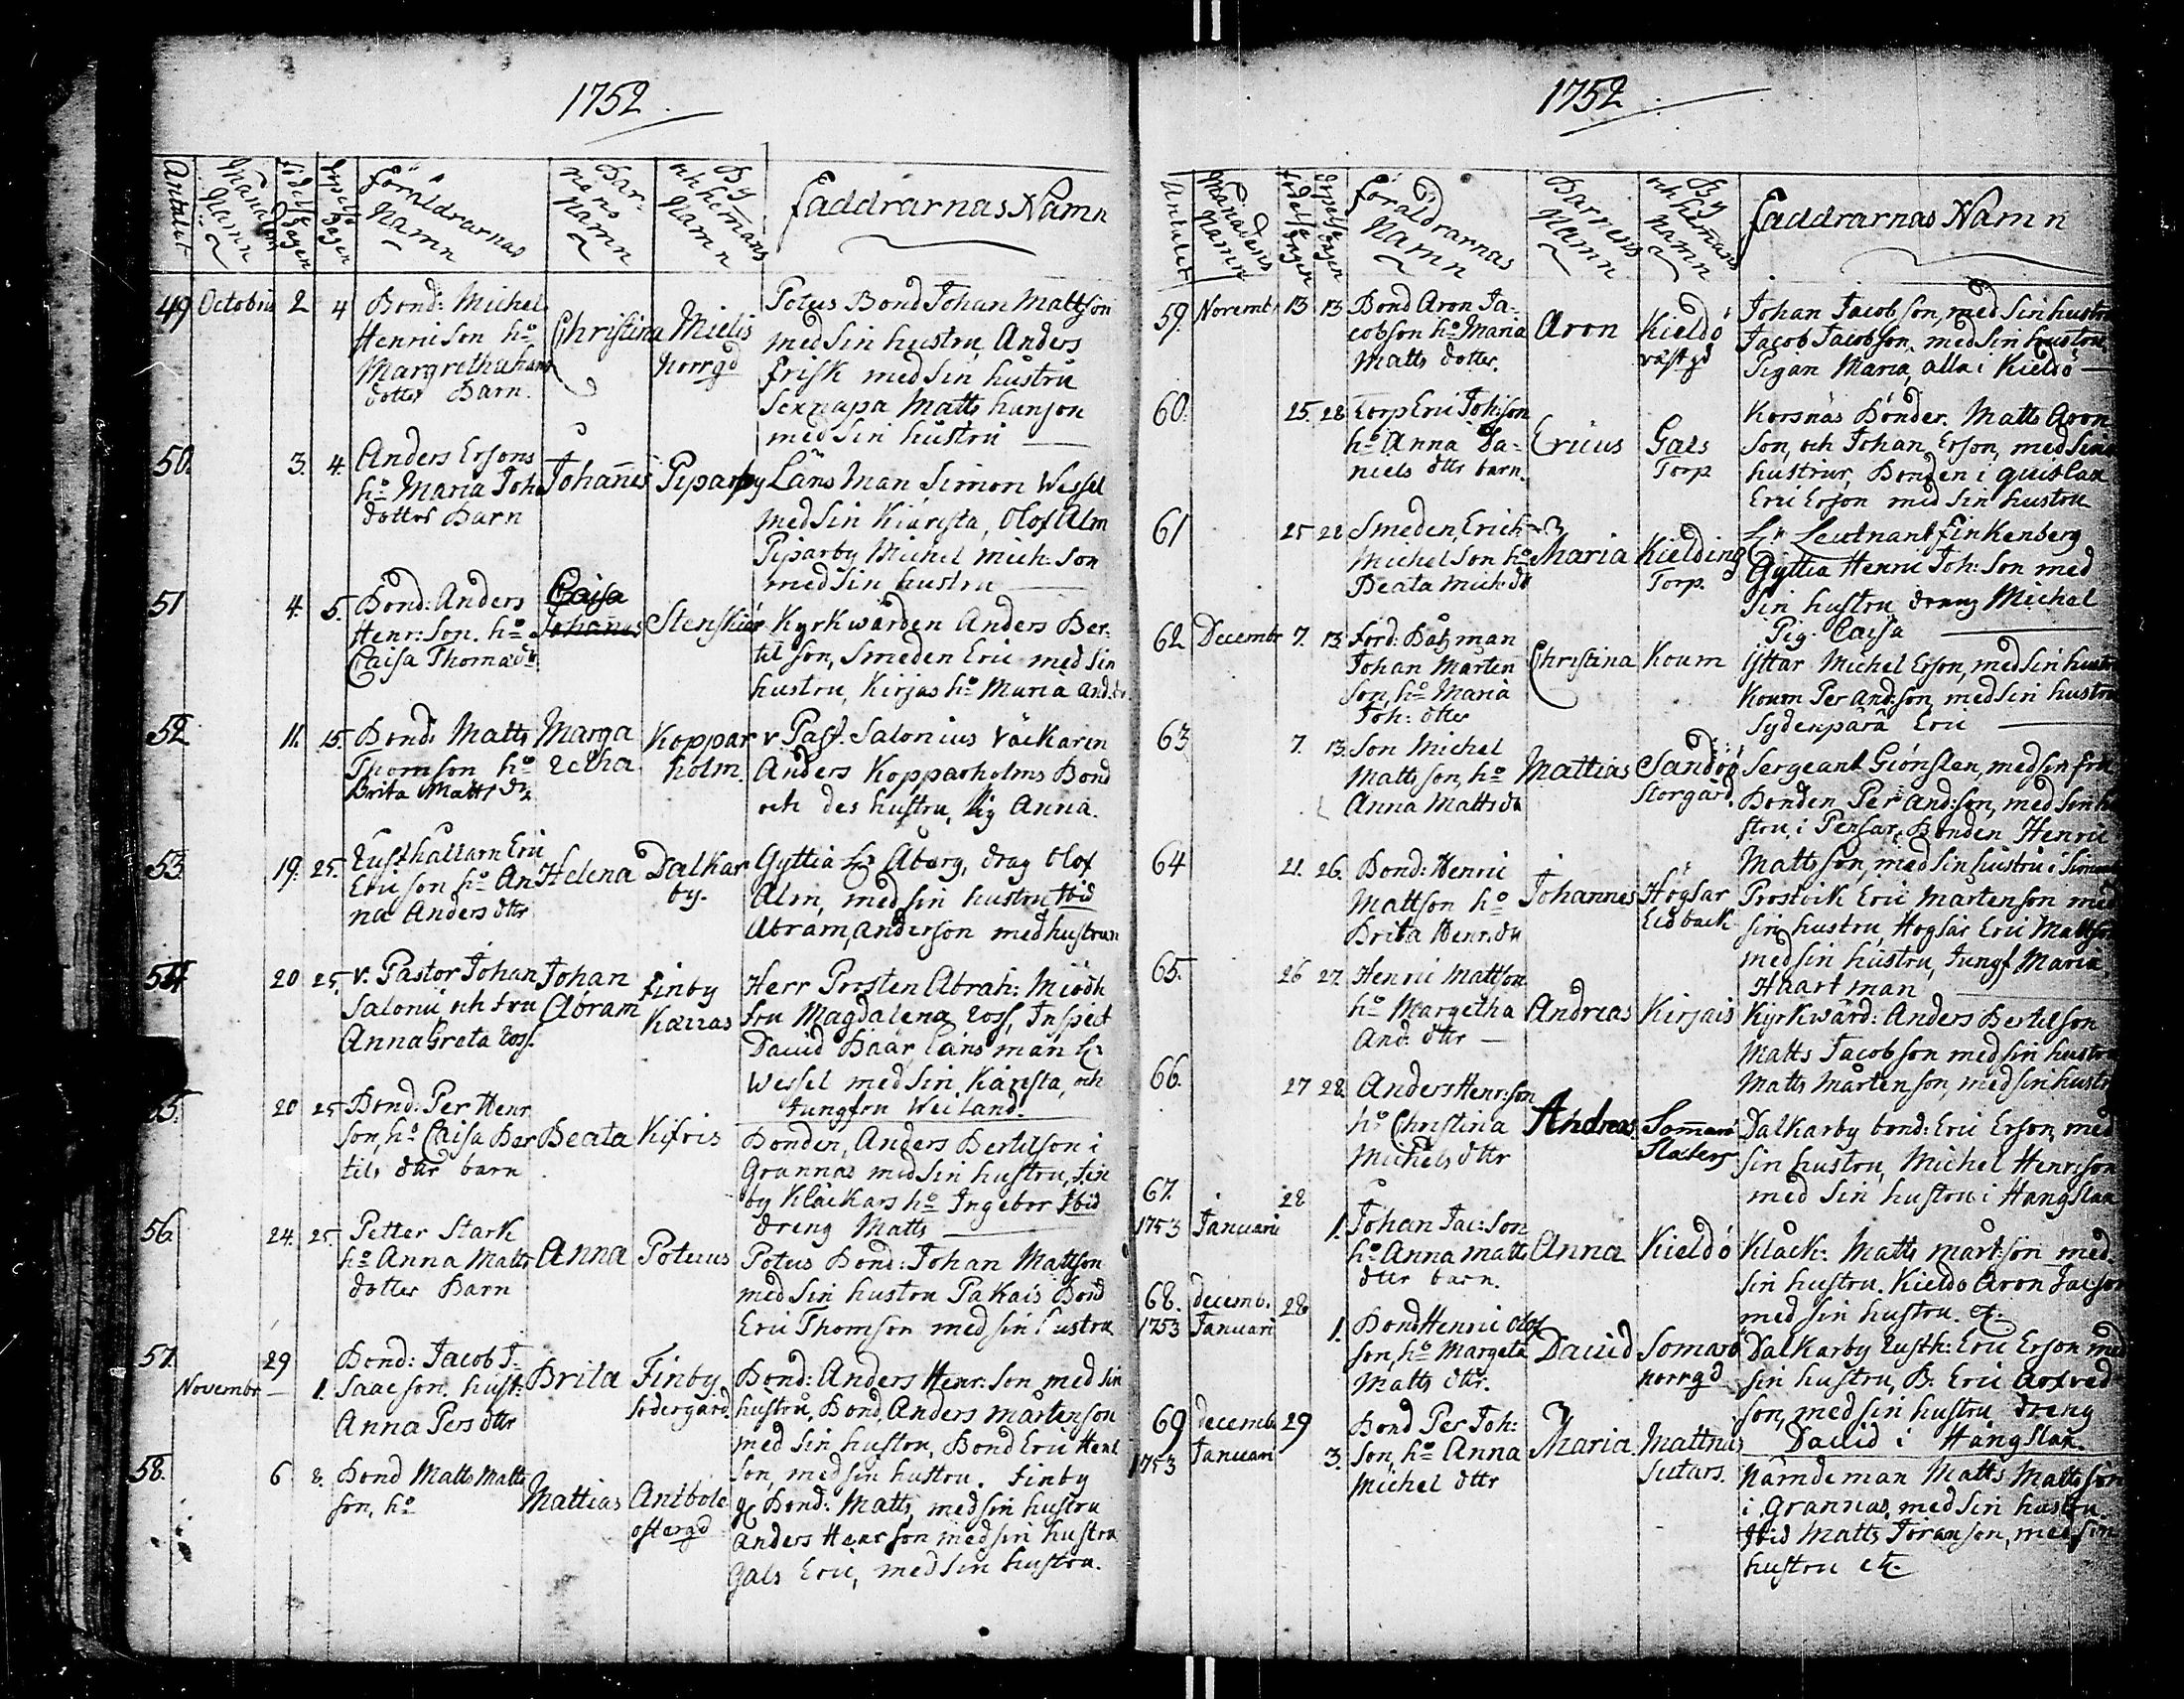 1752
Antalet
Månadens Namn
födelse dagen
Föräldrarnas Namn
Barnens Namn
By och hemans Namn
Faddrarnas Namn
49 Octobris 2 4
Bond: Michel
Henricson ho
dotter Barn.
Christina
Mielis
norrgd
Potus Bond Johan Mattson
med sin hustru, Anders
Frisk med sin hustru
Matts hanson
med sin hustru
50. 3. 4.
Anders Ersons
ho Maria Joh
dotter Barn
Johannes
Piparby
Länsman Simon Wessel
med sin Kiäresta, Olof Alm
Piparby Michel Mich: Son
med sin hustru
51 4. 5.
Bond: Anders
Henr: Son. ho
Caisa Thomadr
Caisa
Johannes
Stenskiär
Kyrkwärden Anders Ber
til son, Smeden Eric med sin
hustru, Kirjas ho Maria And. dr
52 11. 15.
Bond: Matts
Thomson ho
Brita Matts dr
Marga
retha
Koppar
holm.
v. Past. Salonius
Anders Kopparholms Bond
och des hustru, Pig Anna.
53. 19. 25.
Rusthållarn Eric
Ericson ho An
na Anders dttr
Helena
Dalkar
by.
Gyttia Hr Åberg, Olof
Alm, med sin hustru Ibid
Abram Anderson med hustrun
54 20 25.
v. Pastor Johan
Salonii och fru
Anna Greta Ross.
Johan
Abram
Finby
Karras
Herr Prosten Abrah: Miödh
fru Magdalena Ross, Inspect
David Baär Länsman Hr
Wessel med sin Käresta, och
Jungfru Weiland.
55. 20 25
Bond: Per Henr
son, ho Caisa Ber
tils dttr barn
Beata
Kifris
Bonden, Anders Bertelson i
Grannas med sin hustru, Fin
by Kläckars ho Ingebor Ibid
dreng Matts
56. 24. 25.
Petter Stark
ho Anna Matts
dotter Barn
Anna
Poteus
Potus Bond: Johan Mattson
med sin hustru Pakais Bond
Eric Thomson med sin hustru
57. 29
Novembr 1.
Bond: Jacob I-
saacson, hust:
Anna Pers dttr
Brita
Finby
södergård.
Bond: Anders Henr: Son med sin
hustru, Bond, Anders Mårtenson
med sin hustru, Bond Eric Henr
son, med sin hustru. Finby
58. 6 8.
Bond Matts Matts
son, ho
Mattias
Antbole
östergd
Bond: Matts, med sin hustru
Anders Henrson med sin hustru
Gals Eric, med sin hustru.
1752
Antalet
Månadens Namn
födelse dagen
Föräldrarnas Namn
Barnens Namn
By och hemans Namn
Faddrarnas Namn
59. Novembr 13 13
Bond Aron Ja-
cobson ho Maria
Matts dotter.
Aron
Kieldö
västgd
Johan Jacobson, med sin hustru
Jacob Jacobson, med sin hustru,
Pigan Maria, alla i Kieldö
60. 25. 28
Torp Eric Joh:son
ho Anna Da-
niels dttr barn.
Ericus
Gals
Torp
Korsnäs Bönder. Matts Aron
son, och Johan Erson, med sina
hustrur, Bonden i quislax
Eric Erson med sin hustru
61 25 28
Smeden, Erich
Michelson ho
Beata Mich: dr
Maria
Kielding
Torp.
Hr Leutnant Finkenberg
Gyttia Henric Joh: Son med
sin hustru, dreng Michel
Pig. Caisa
62 Decembr 7. 13
Förd: Båtzman
Johan Mårten
son, ho Maria
Joh: dtter
Christina
Koum
Yttar Michel Erson, med sin hustru
Koum Per And:son, med sin hustru
Sydenpärä Eric
63 7. 13
Son Michel
Mattson, ho
Anna Matts dr
Mattias
Sandö
Storgård.
Sergeant Grönsten, med sin fru
Bonden Per And:son, med sin hu
stru, i Pensar, Bonden Henric
Mattsson, med sin hustru i
64 21. 26.
Bond: Henric
Mattson ho
Brita Henr. dr
Johannes
Högsar
Eidback
Prostvik Eric Mårtenson med
sin hustru, Högsar Eric Mattson
med sin hustru, Jungf Maria
Haartman
65. 26 27
Henric Mattson
ho Margetha
And: dttr
Andreas
Kirjais
Kyrkwärd: Anders Bertelson
Matts Jacobson med sin hustru
Matts Mårtenson, med sin hustru
66. 27 28
Anders Henr:son
ho Christina
Michels dttr
Andreas
Dalkarby bond: Eric Erson, med
sin hustru, Michel Henr:son
med sin hustru i Hangslax
67. 28
1753 Januarii 1.
Johan Jac: Son
ho Anna Matts
dttr barn.
Anna
Kieldö
Klåck: Matts Mårt:son med
sin hustru. Kieldo Aron Jacson
med sin hustru. etc.
68. decemb. 28
1753 Januari 1.
Bond Henric Olof
son, ho Margeta
Matts dttr.
David
Somarö
norrgd
Dalkarby Rusth: Eric Erson med
sin hustru, B. Eric Axfred
son, med sin hustru dreng
David i Hangslax.
69 decemb 29
1753 Januari 3.
Bond Per Joh:
son, ho Anna
Michel dttr
Maria
Mattnäs
Sutars.
Nämdeman Matts Mattsson
i Grannas, med sin hustru.
Ibid Matts Jöranson, med sin
hustru etc.